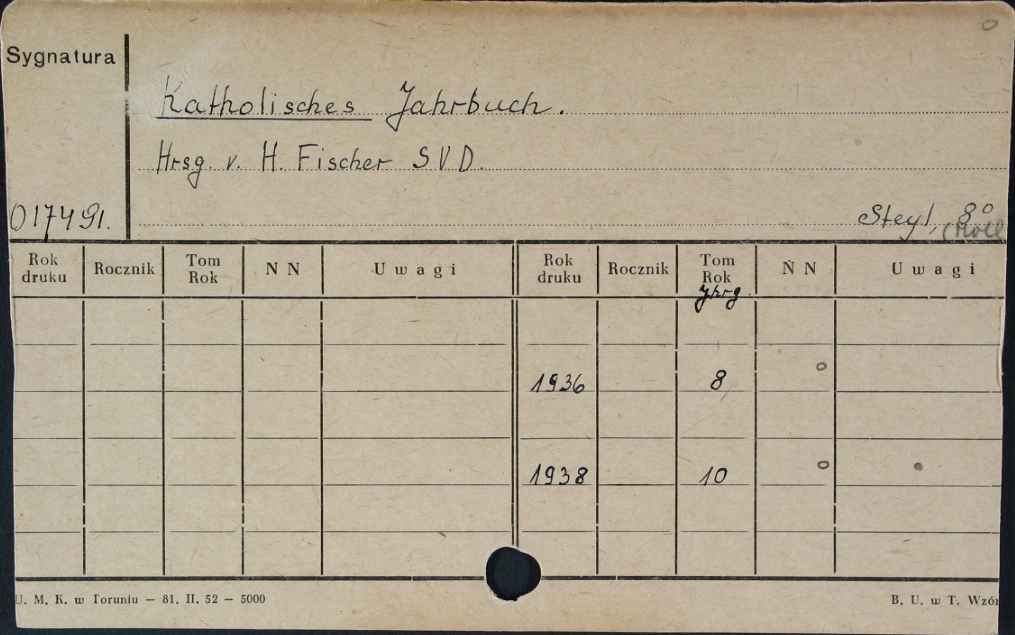 Sygnatura
Katholisches Jahrbuch.
Hrsg. v. H. Fischer S V D.
017491.
Steyl, 8°
Rok druku Rocznik Tom Rok N N Uwagi Rok druku Rocznik Tom Rok N N Uwagi
Jhrg.
1936 8
1938 10
U. M. K. w Toruniu — 81. II. 52 — 5000
B. U. w T. Wzór